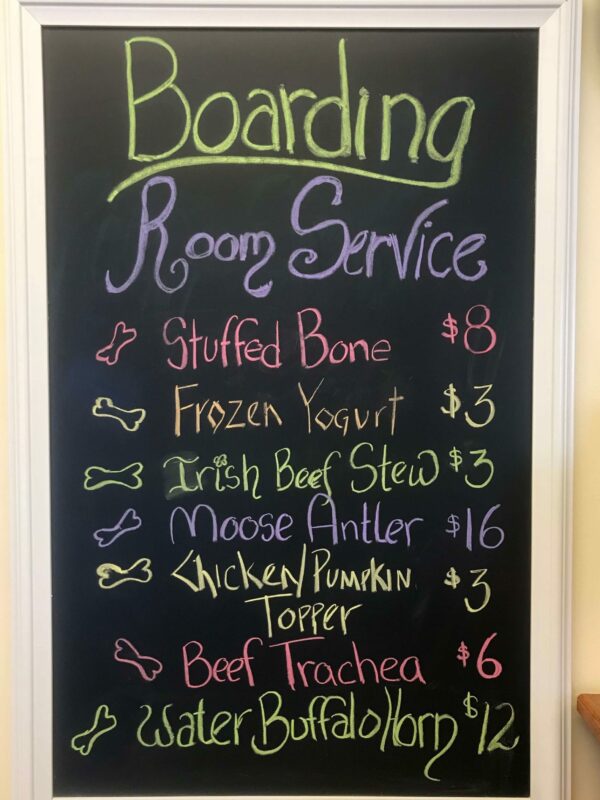 Boarding
Room Service
Stuffed Bone $8
Frozen Yogurt $3
Irish Beef Stew $3
Moose Antler $16
Chicken/Pumpkin $3
Topper
Beef Trachea $6
Water Buffalo Horn $12